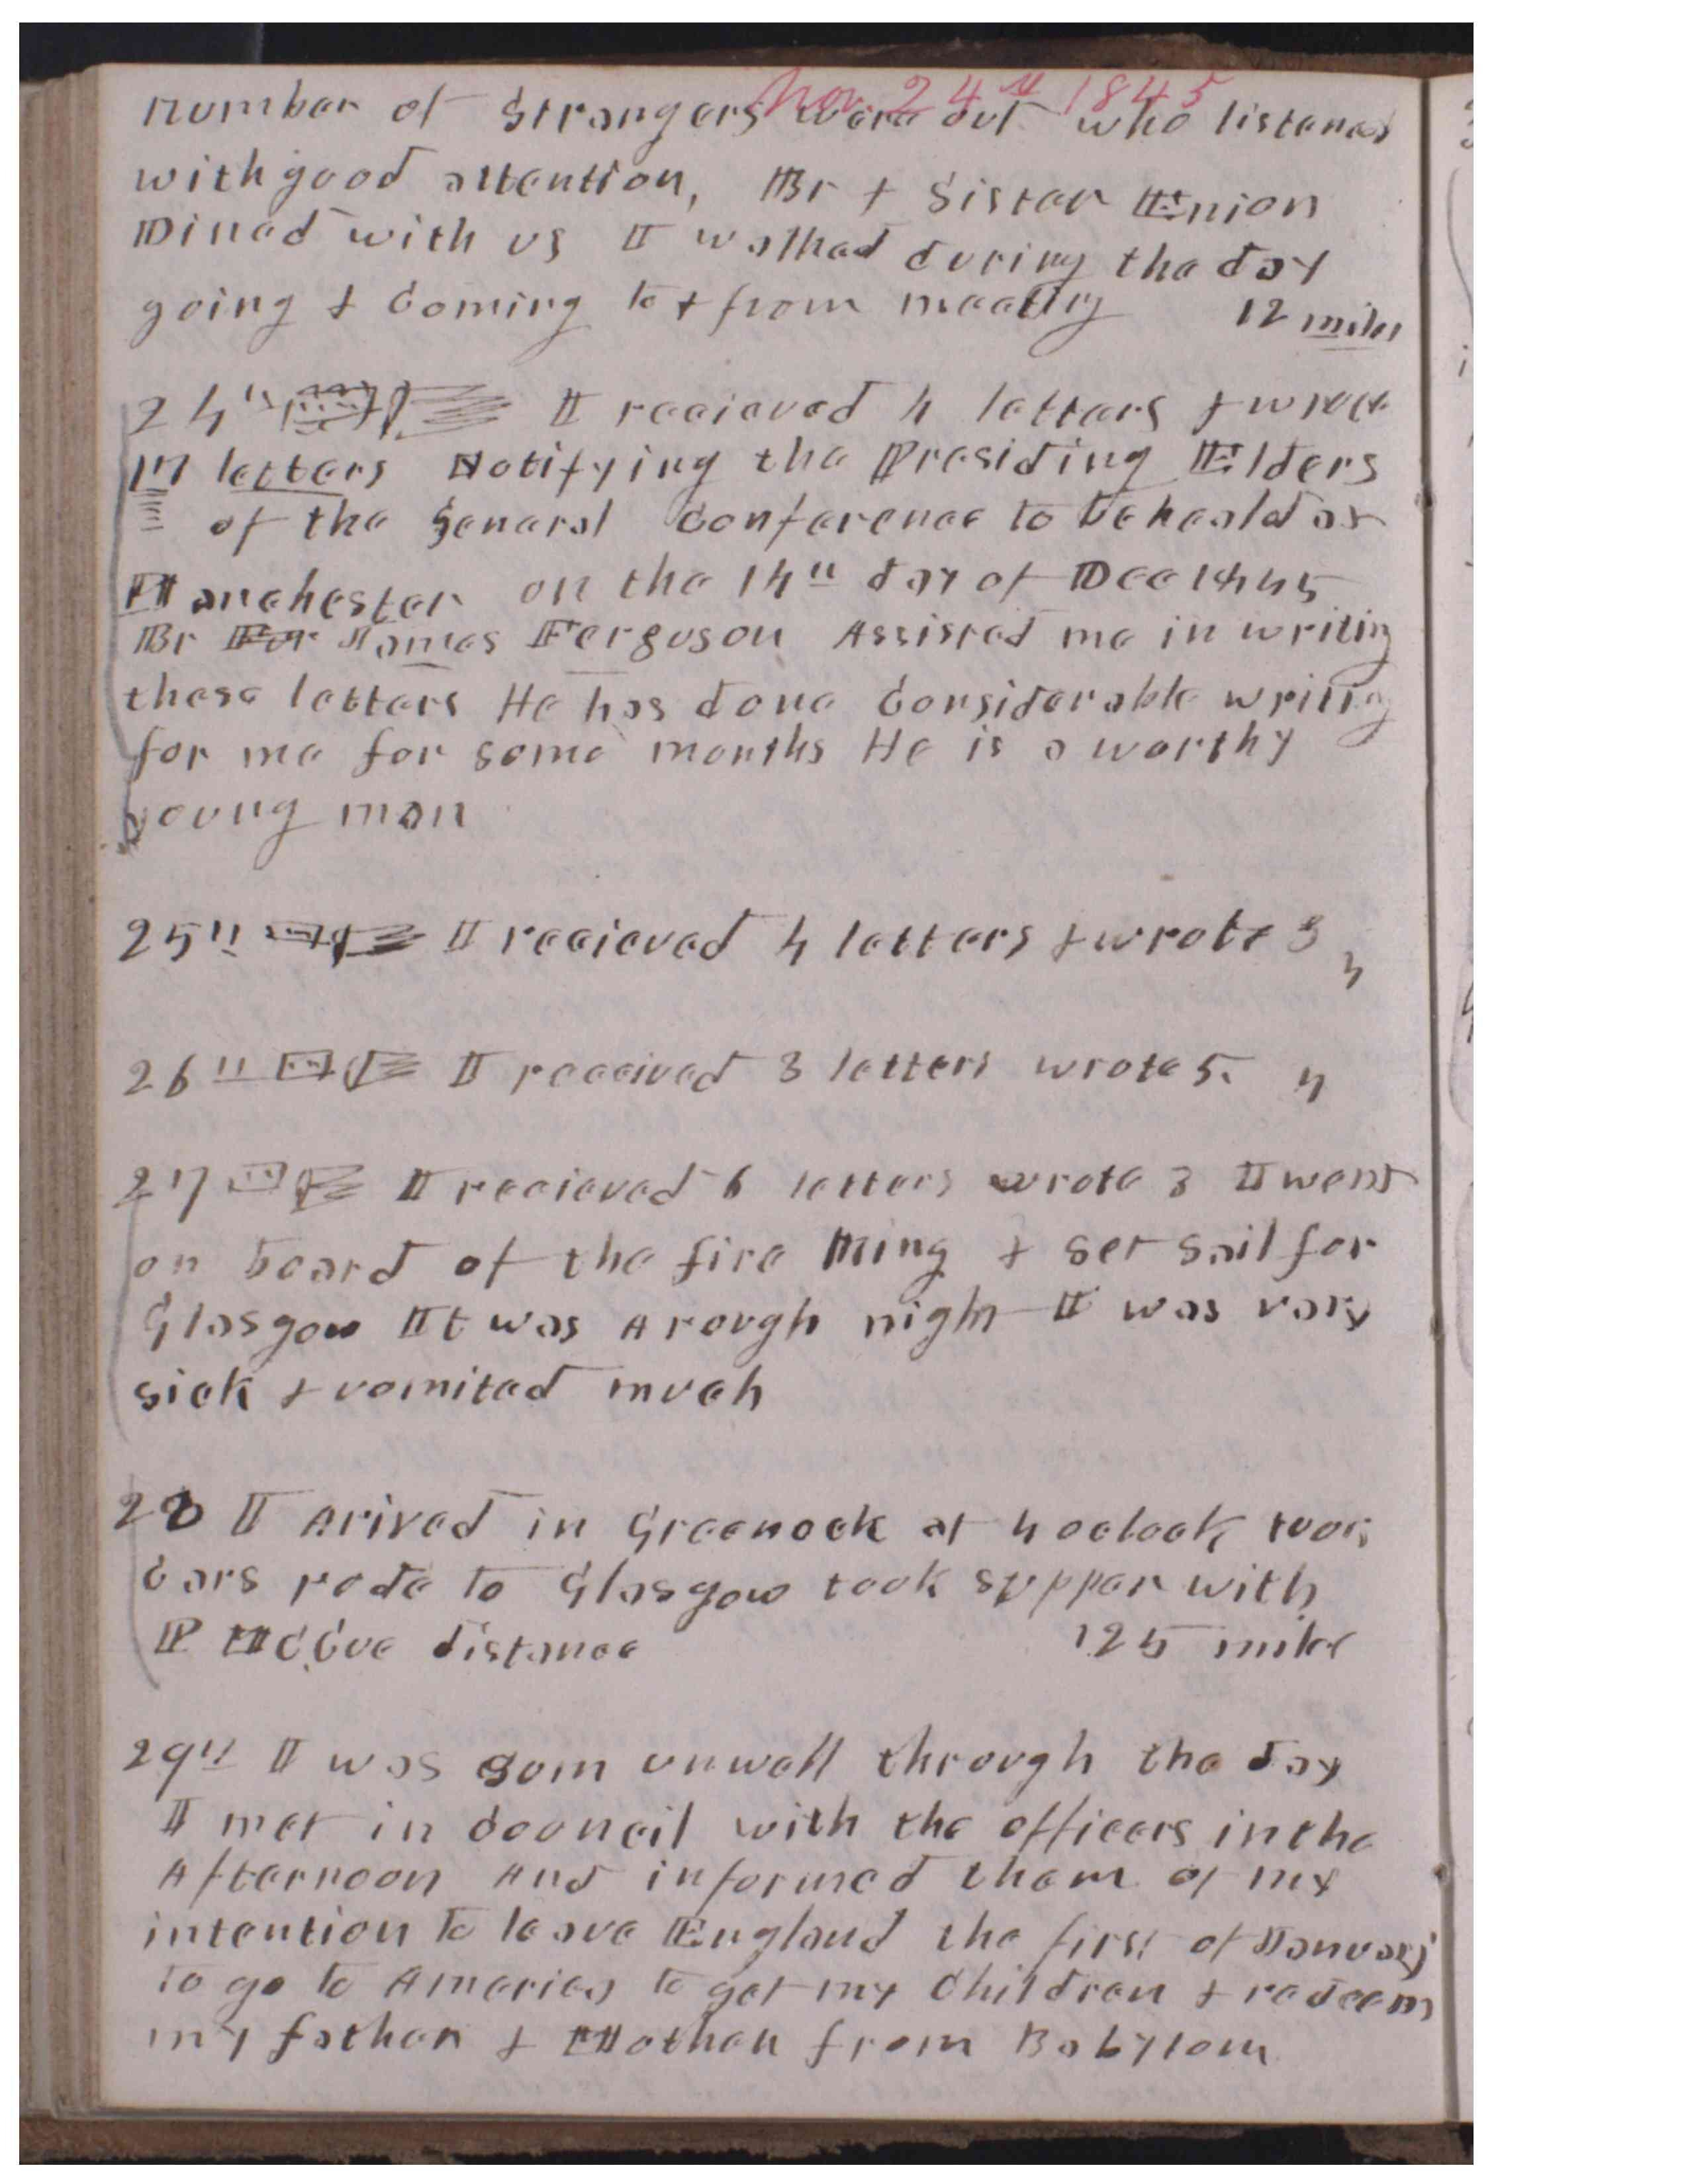 Nov. 24th 1845
number of Strangers were out who listened
with good attention, Br & Sister Enion
Dined with us I walked during the day
going & Coming to & from meeting 12 miles
24th I recieved 4 letters & wrote
17 letters Notifying the Presiding Elders
of the General Conference to be heald at
Manchester on the 14th day of Dec 1845
Br For James Ferguson Assisted me in writing
these letters He has done Considerable writing
for me for some months He is a worthy
young man
25th I recieved 4 letters & wrote 3 4
26th I received 3 letters wrote 5. 4
27 I recieved 6 letters wrote 3 I went
on board of the fire King & set sail for
Glasgow It was A rough night I was very
sick & vomited much
28 I Arived in Greenock at 4 oclock took
Cars rode to Glasgow took supper with
P McCue distance 125 miles
29th I was som unwell through the day
I met in Council with the officers in the
Afternoon And informed them of my
intention to leave England the first of January
to go to America to get my Children & redeem
my father & Mother from Babylom